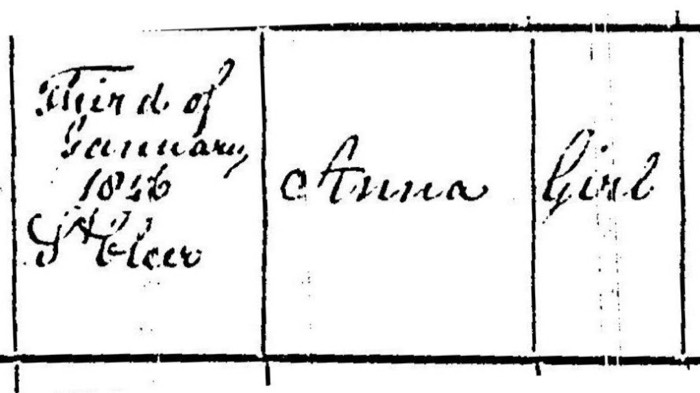 Third of
January
1856
St Cleer
Anna
Girl